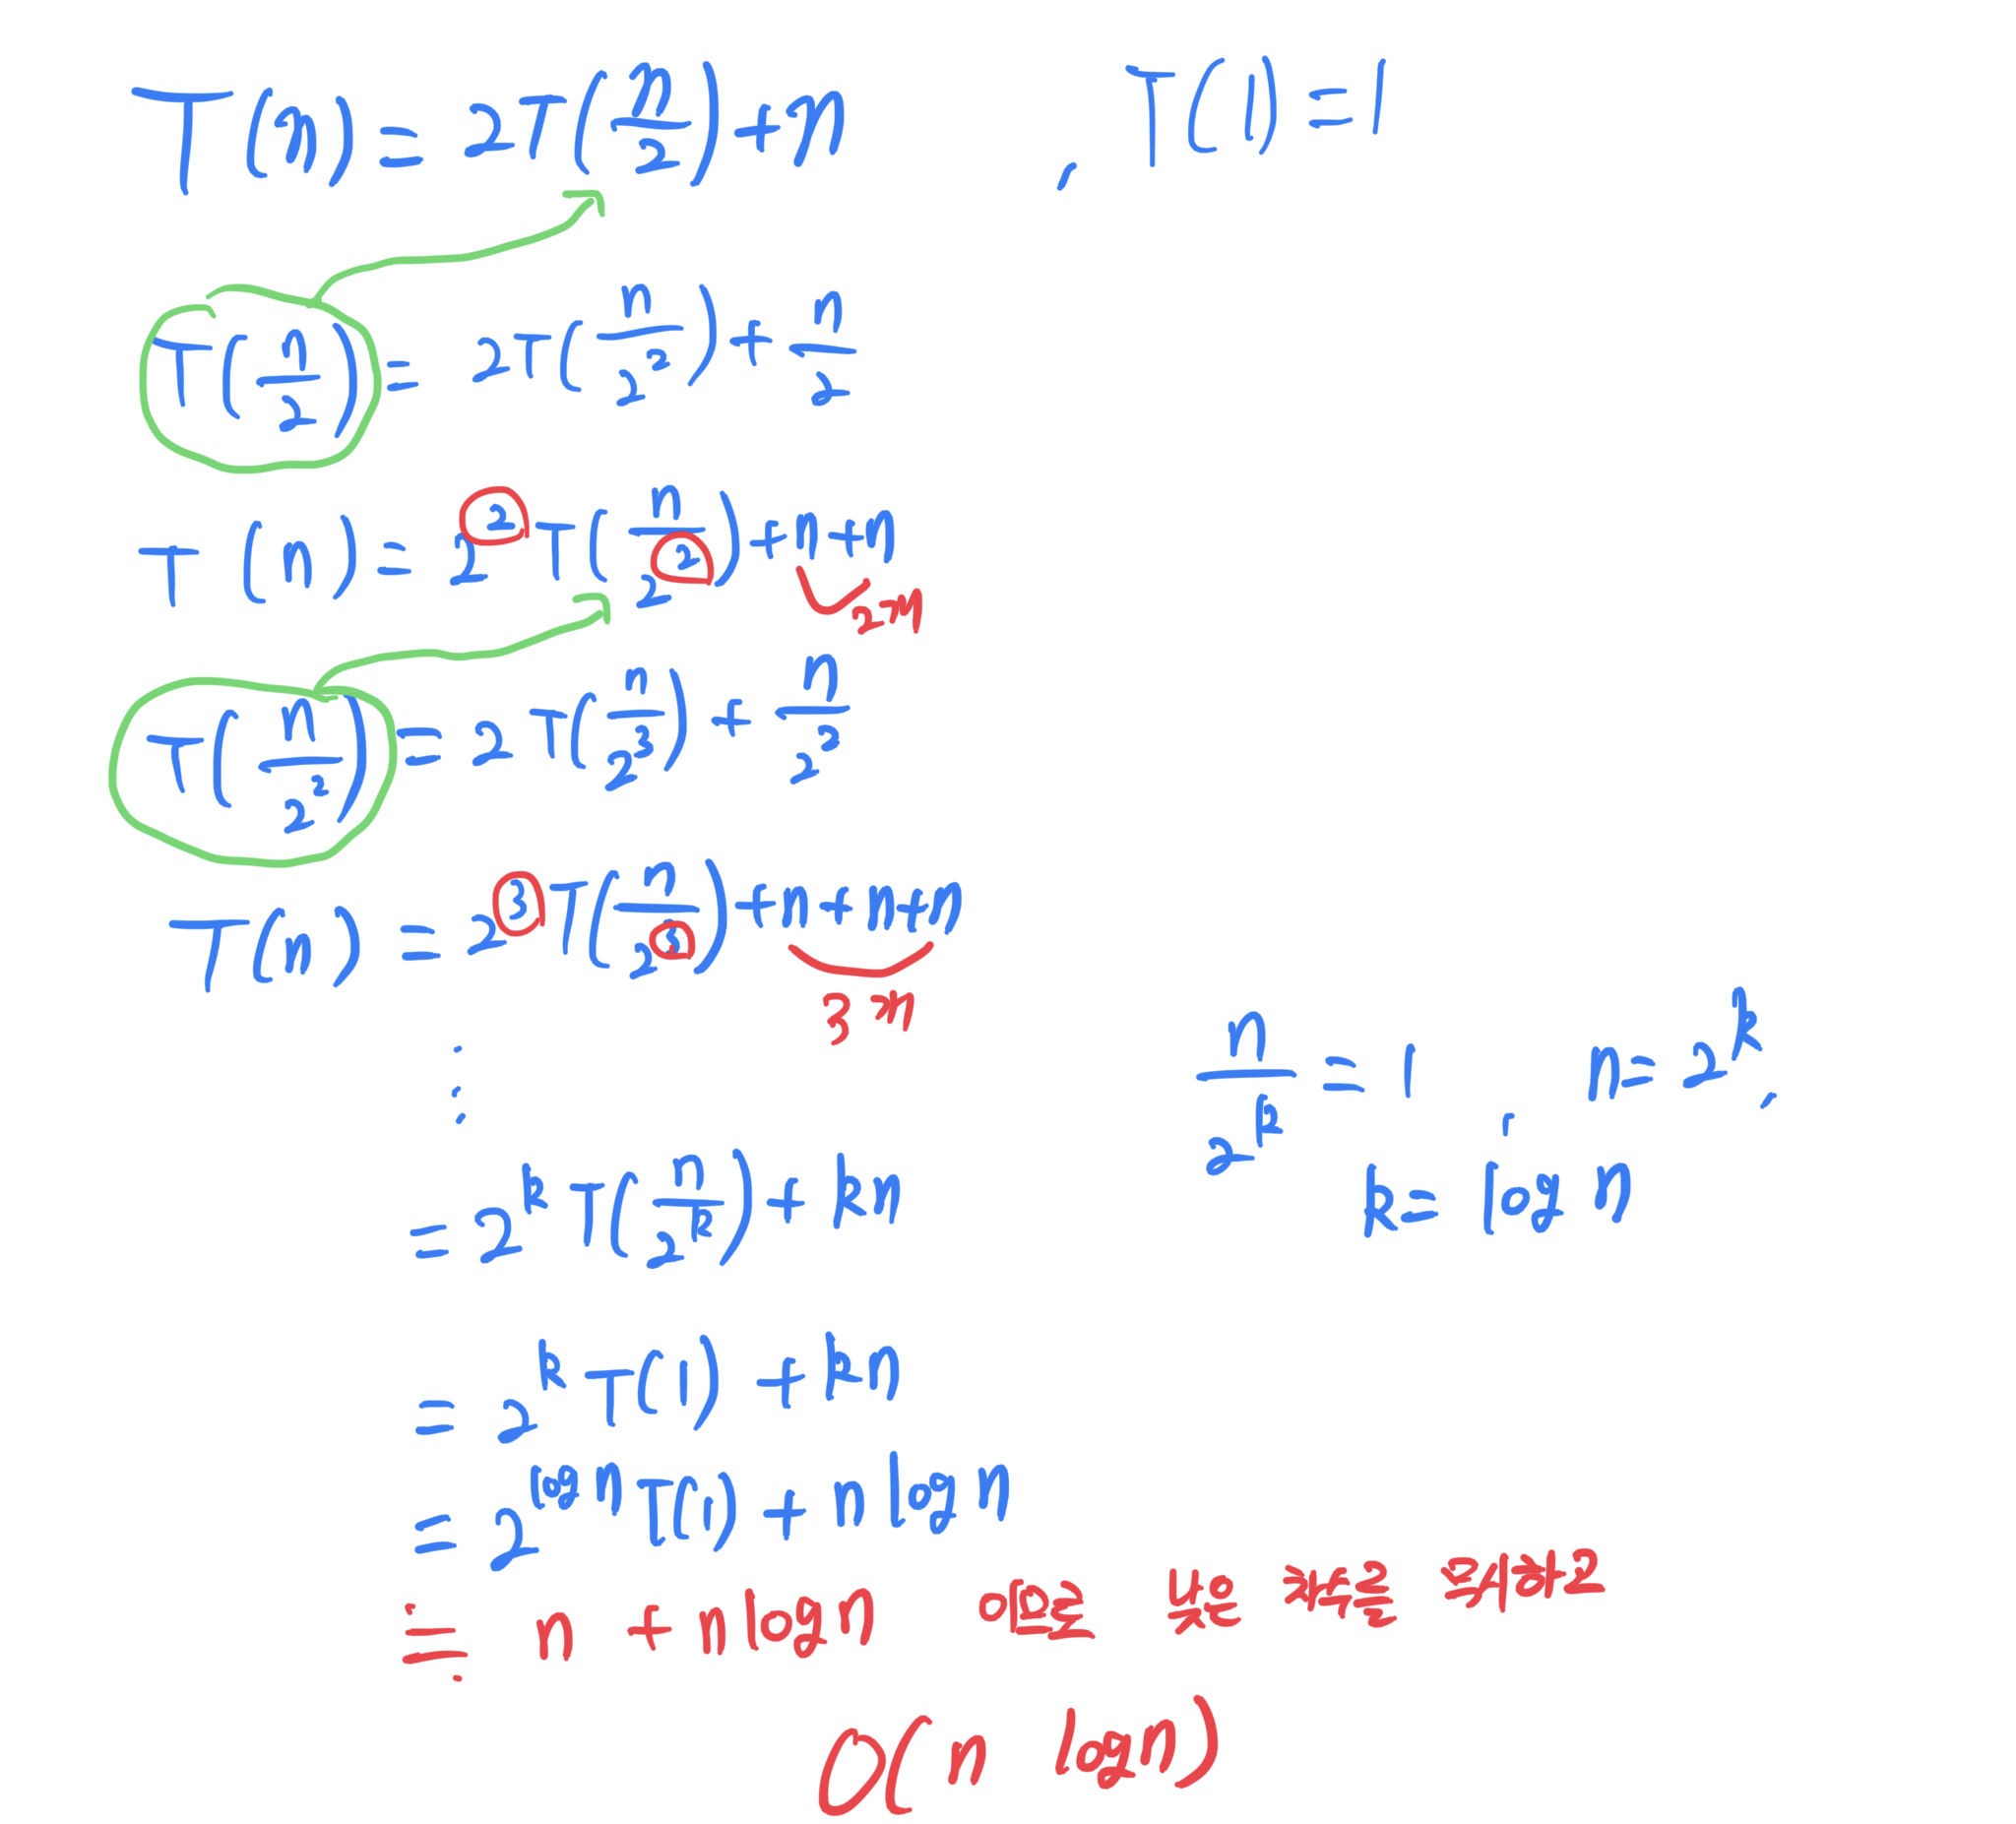 T(n) = 2T(n/2) + n , T(1) = 1
T(n/2) = 2T(n/2²) + n/2
T(n) = 2² T(n/2²) + n + n
2n
T(n/2²) = 2T(n/2³) + n/2²
T(n) = 2³ T(n/2³) + n + n + n
3n
⋮
n/2ᵏ = 1 , n = 2ᵏ,
k = log n
= 2ᵏ T(n/2ᵏ) + kn
= 2ᵏ T(1) + kn
= 2^(log n) T(1) + n log n
≓ n + n log n 이므로 높은 차수를 취하고
O(n log n)